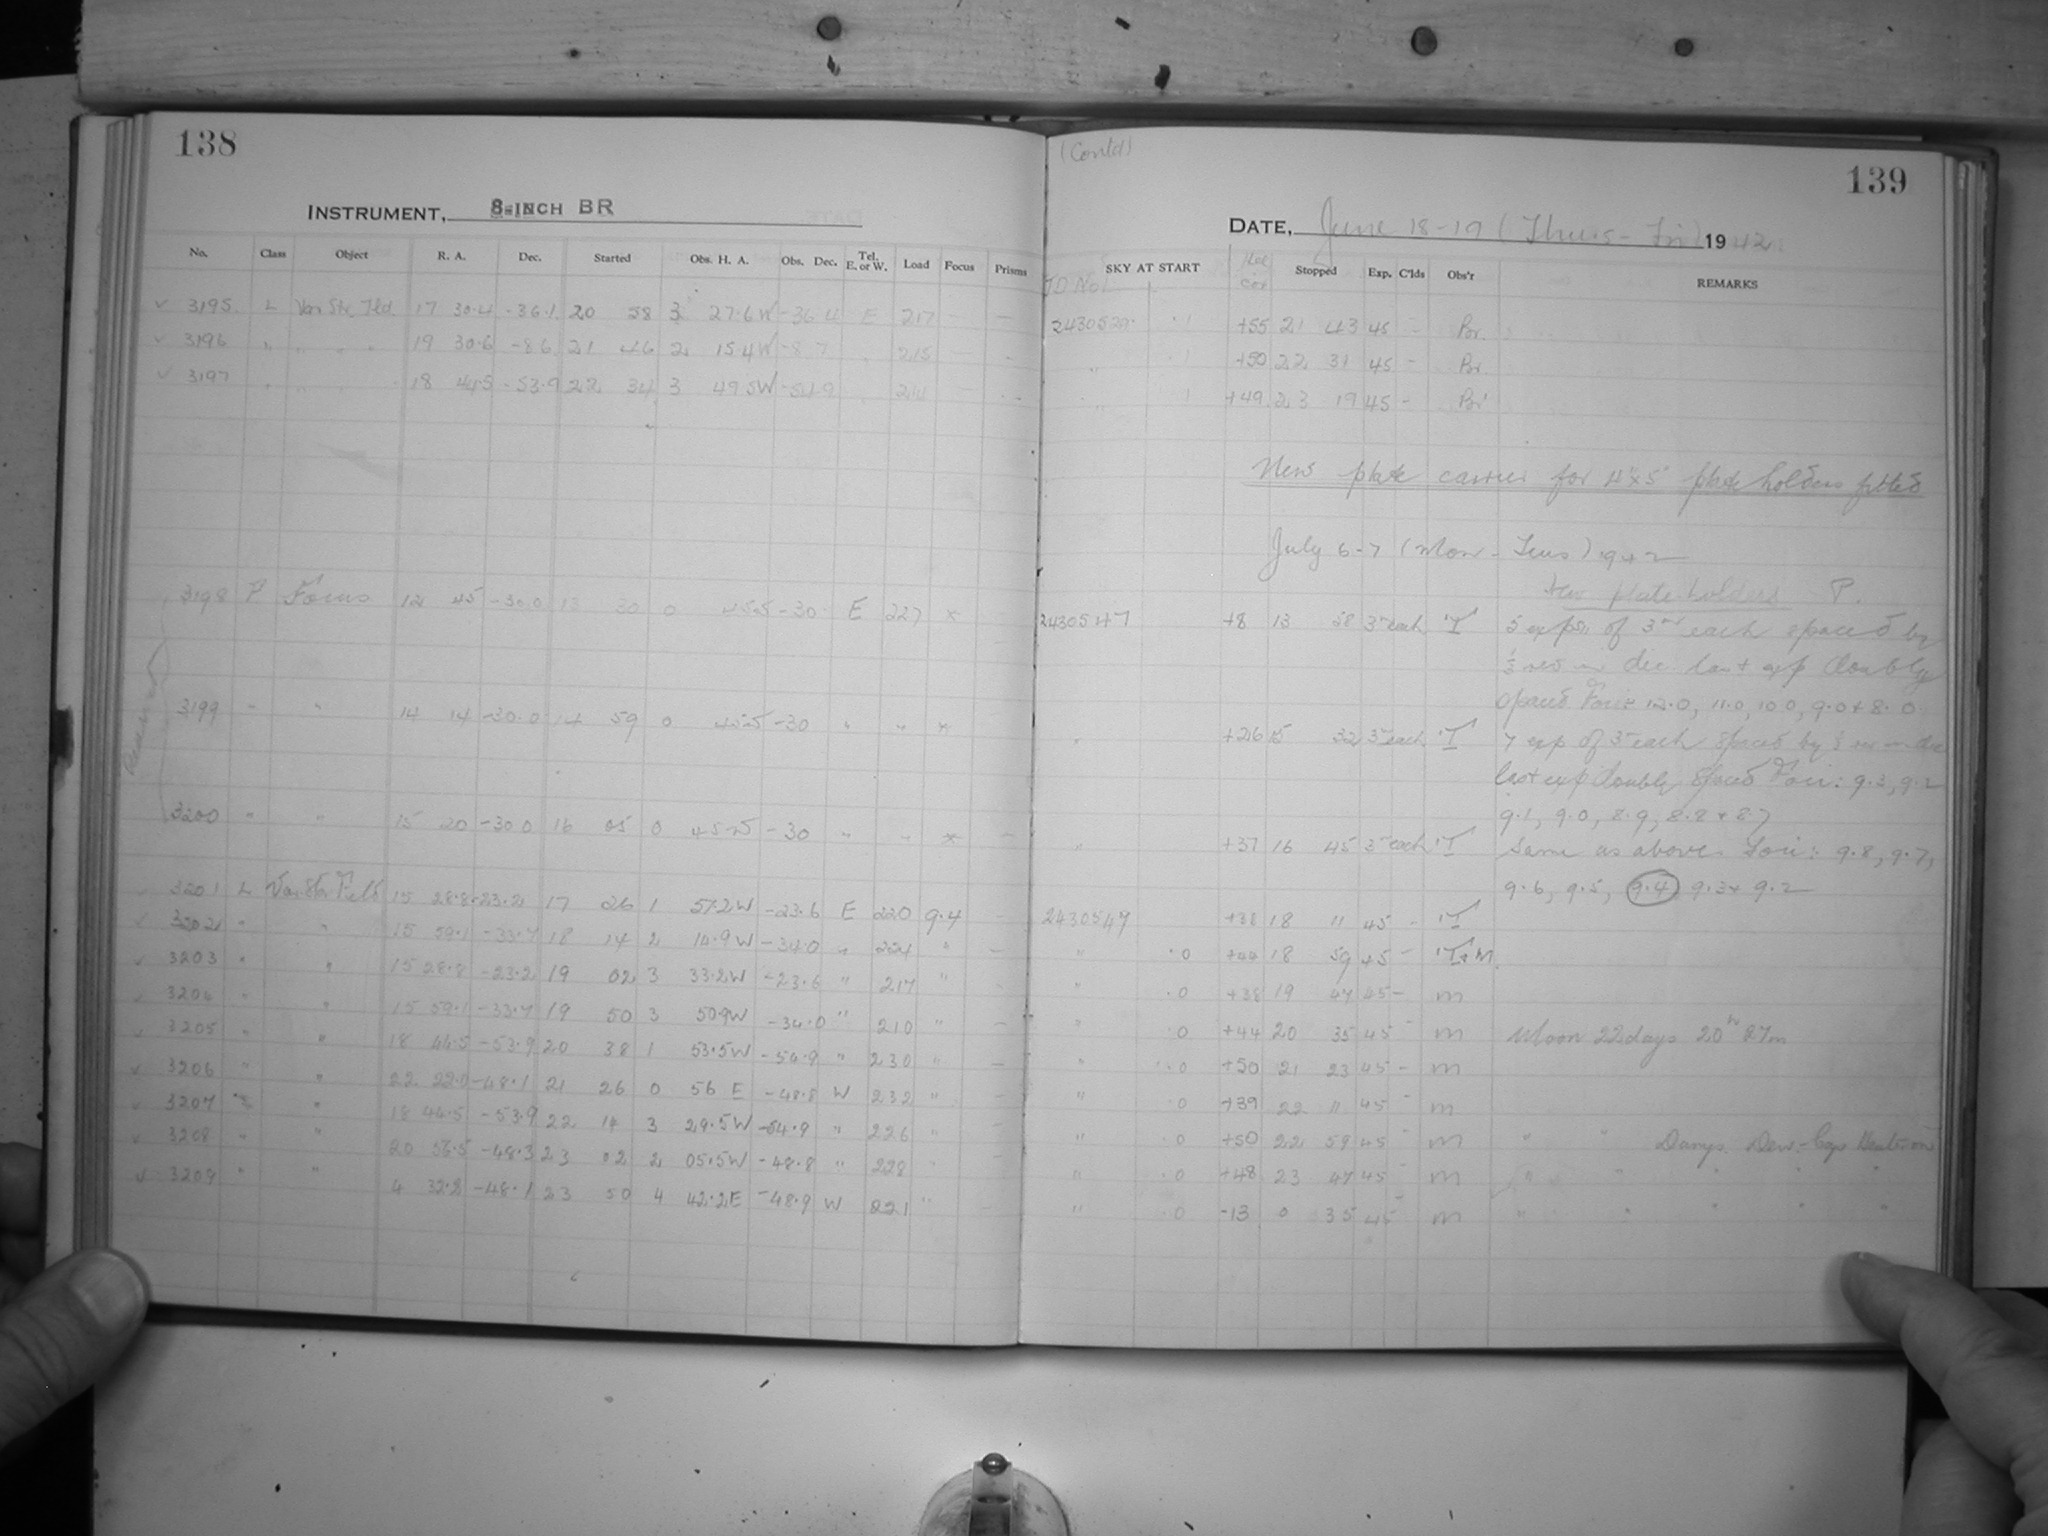 138
INSTRUMENT, 8-INCH BR
No. Class Object R. A. Dec. Started Obs. H. A. Obs. Dec. Tel. E. or W. Load Focus Prisms
3195 L Var Str. Fld. 17 30.4 -36.1 20 58 3 27.6W -36.4 E 217
3196 " " " " 19 30.6 -8.6 21 46 2 15.4W -8.7 215
3197 " " " 18 44.5 -53.9 22 34 3 49.5W -54.9 214
3198 P Focus 12 45 -30.0 13 30 0 -30 E 227 *
3199 " " 14 14 -30.0 14 59 0 -30 " " *
3200 " " 15 20 -30.0 16 05 0 -30 " " *
3201 L Var. Str. Field 15 28.8 -23.2 17 26 1 57.2W -23.6 E 220 9.4 -
3202 " " 15 59.1 -33.7 18 14 2 14.9W -34.0 " 224 " -
3203 " " 15 28.8 -23.2 19 02 3 33.2W -23.6 " 217 " -
3204 " " 15 59.1 -33.7 19 50 3 50.9W -34.0 " 210 "
3205 " " 18 44.5 -53.9 20 38 1 53.5W -54.9 " 230 " -
3206 " " 22 22.0 -48.1 21 26 0 56 E -48.8 W 232 " -
3207 " " 18 44.5 -53.9 22 14 3 29.5W -54.9 " 226 "
3208 " " 20 56.5 -48.3 23 02 2 05.5W -48.8 " 228
3209 " " 4 32.2 -48.1 23 50 4 42.2E -48.9 W 221 "
(Contd)
139
DATE, June 18-19 (Thurs - Fri) 1942
SKY AT START Stopped Exp. C'lds Obs'r REMARKS
JD No.
2430529 .1 +55 21 43 45 - Br.
" .1 +50 22 31 45 - Br.
" .1 +49 23 19 45 - Br.
New plate carrier for 4"x5" plate holders fitted
July 6-7 (Mon - Tues) 1942
New plate holders P.
2430547 +8 13 58 3m each T 5 exps. of 3m each spaced by
½ rev in dec last exp doubly
spaced Foci: 12.0, 11.0, 10.0, 9.0 & 8.0
" +26 15 32 3m each T 7 exp of 3m each spaced by ½ rev in dec
last exp doubly spaced Foci: 9.3, 9.2
9.1, 9.0, 8.9, 8.8 & 8.7
" +37 16 45 3m each T Same as above. Foci: 9.8, 9.7,
9.6, 9.5, 9.4, 9.3 & 9.2
2430547 +38 18 11 45 - T
" .0 +44 18 59 45 - T&M.
" .0 +38 19 47 45 - m
" .0 +44 20 35 45 - m Moon 22 days 20h 27m
" .0 +50 21 23 45 - m
" .0 +39 22 11 45 - m
" .0 +50 22 59 45 - m " " Damp. Dew-Cap Heater on
" .0 +48 23 47 45 m " " " " "
" .0 -13 0 35 45 - m " " " " "